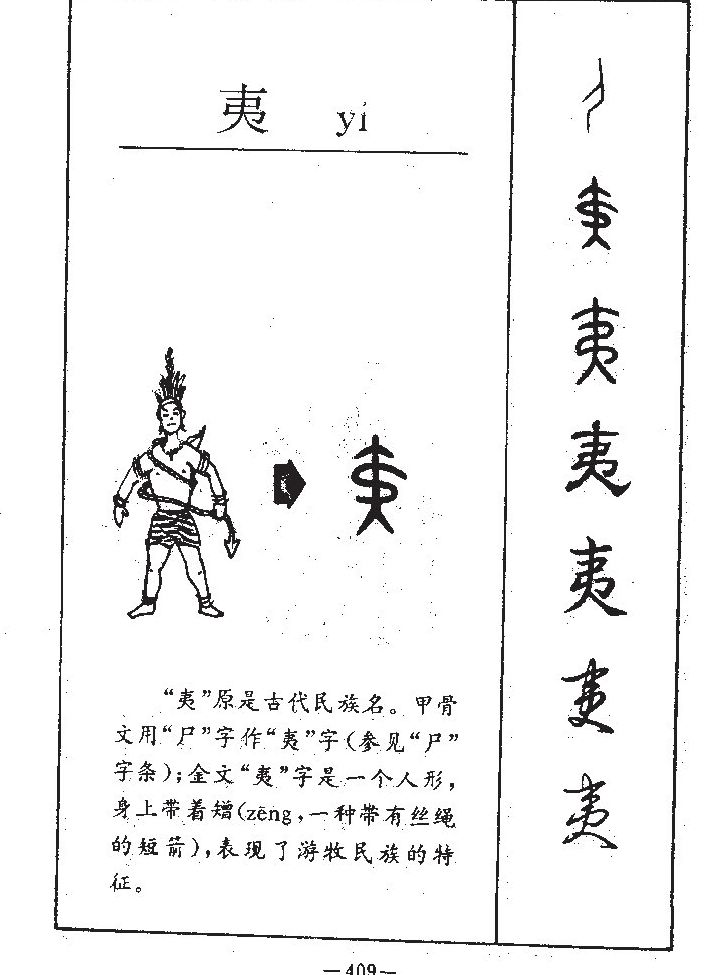 夷 yí
“夷”原是古代民族名。甲骨
文用“尸”字作“夷”字(参见“尸”
字条);金文“夷”字是一个人形,
身上带着矰(zēng,一种带有丝绳
的短箭),表现了游牧民族的特
征。
夷
夷
夷
夷
夷
夷
—409—